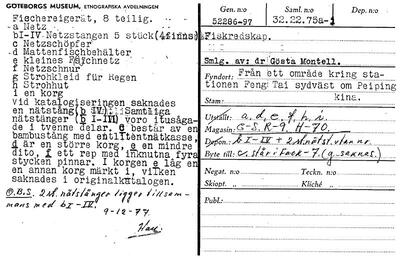 GÖTEBORGS MUSEUM, ETNOGRAFISKA AVDELNINGEN
Fischereigerät, 8 teilig.
a Netz
bI-IV Netzstangen 5 stück (4 finns)
c Netzschöpfer
d Mattenfischbehälter
e kleines Netz
f Netzschnur
g Strohkleid für Regen
h Strohhut
i en korg
vid katalogiseringen saknades
en nätstång (b IV). Samtliga
nätstänger (b I-III) voro itusåga-
de i tvenne delar. c består av en
bambustång med en nätkasse,
d är en större korg, e en mindre
dito, f ett rep med inknutna fyra
stycken pinnar. I korgen e låg en
en annan korg märkt i, vilken
saknades i originalkatalogen.
O.B.S. 2 st. nätstänger ligger tillsam-
mans med b I-IV.
9-12-77
Gen.n:o
52286-97
Saml.n:o
32.22.75a-i
Dep.n:o
Fiskredskap.
Smlg. av: dr Gösta Montell.
Fyndort: Från ett område kring sta-
tionen Feng Tai sydväst om Peiping
Stam: Kina.
Utställt: a, d, e, f, h, i.
Magasin: G-S, R-9, H-70.
Depon.: b I-IV + 2 st nätst. utan nr.
Byte till: c. står i Fack-7. (g. saknas.)
Negat. n:o
Teckn.
Skiopt.
Kliché
Publ.: